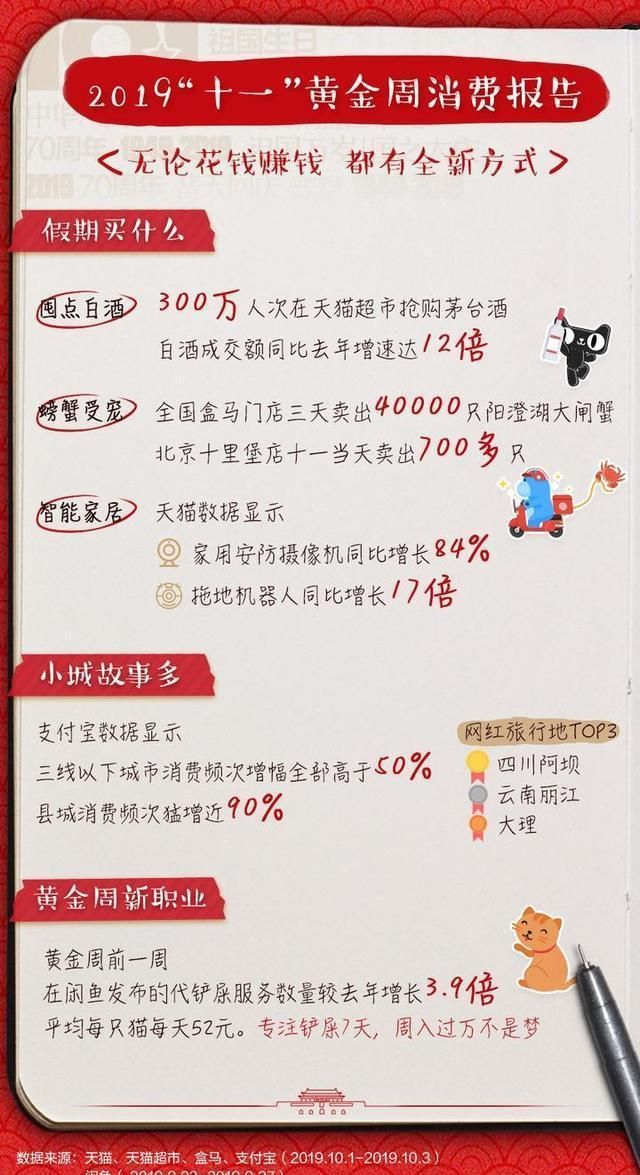 祖国生日
70周年 1949-2019
2019 70周年
2019“十一”黄金周消费报告
<无论花钱赚钱 都有全新方式>
假期买什么
囤点白酒 300万人次在天猫超市抢购茅台酒
白酒成交额同比去年增速达12倍
螃蟹受宠 全国盒马门店三天卖出40000只阳澄湖大闸蟹
北京十里堡店十一当天卖出700多只
智能家居 天猫数据显示
家用安防摄像机同比增长84%
拖地机器人同比增长17倍
小城故事多
支付宝数据显示
三线以下城市消费频次增幅全部高于50%
县城消费频次猛增近90%
网红旅行地TOP3
四川阿坝
云南丽江
大理
黄金周新职业
黄金周前一周
在闲鱼发布的代铲屎服务数量较去年增长3.9倍
平均每只猫每天52元。专注铲屎7天，周入过万不是梦
数据来源：天猫、天猫超市、盒马、支付宝（2019.10.1-2019.10.3）